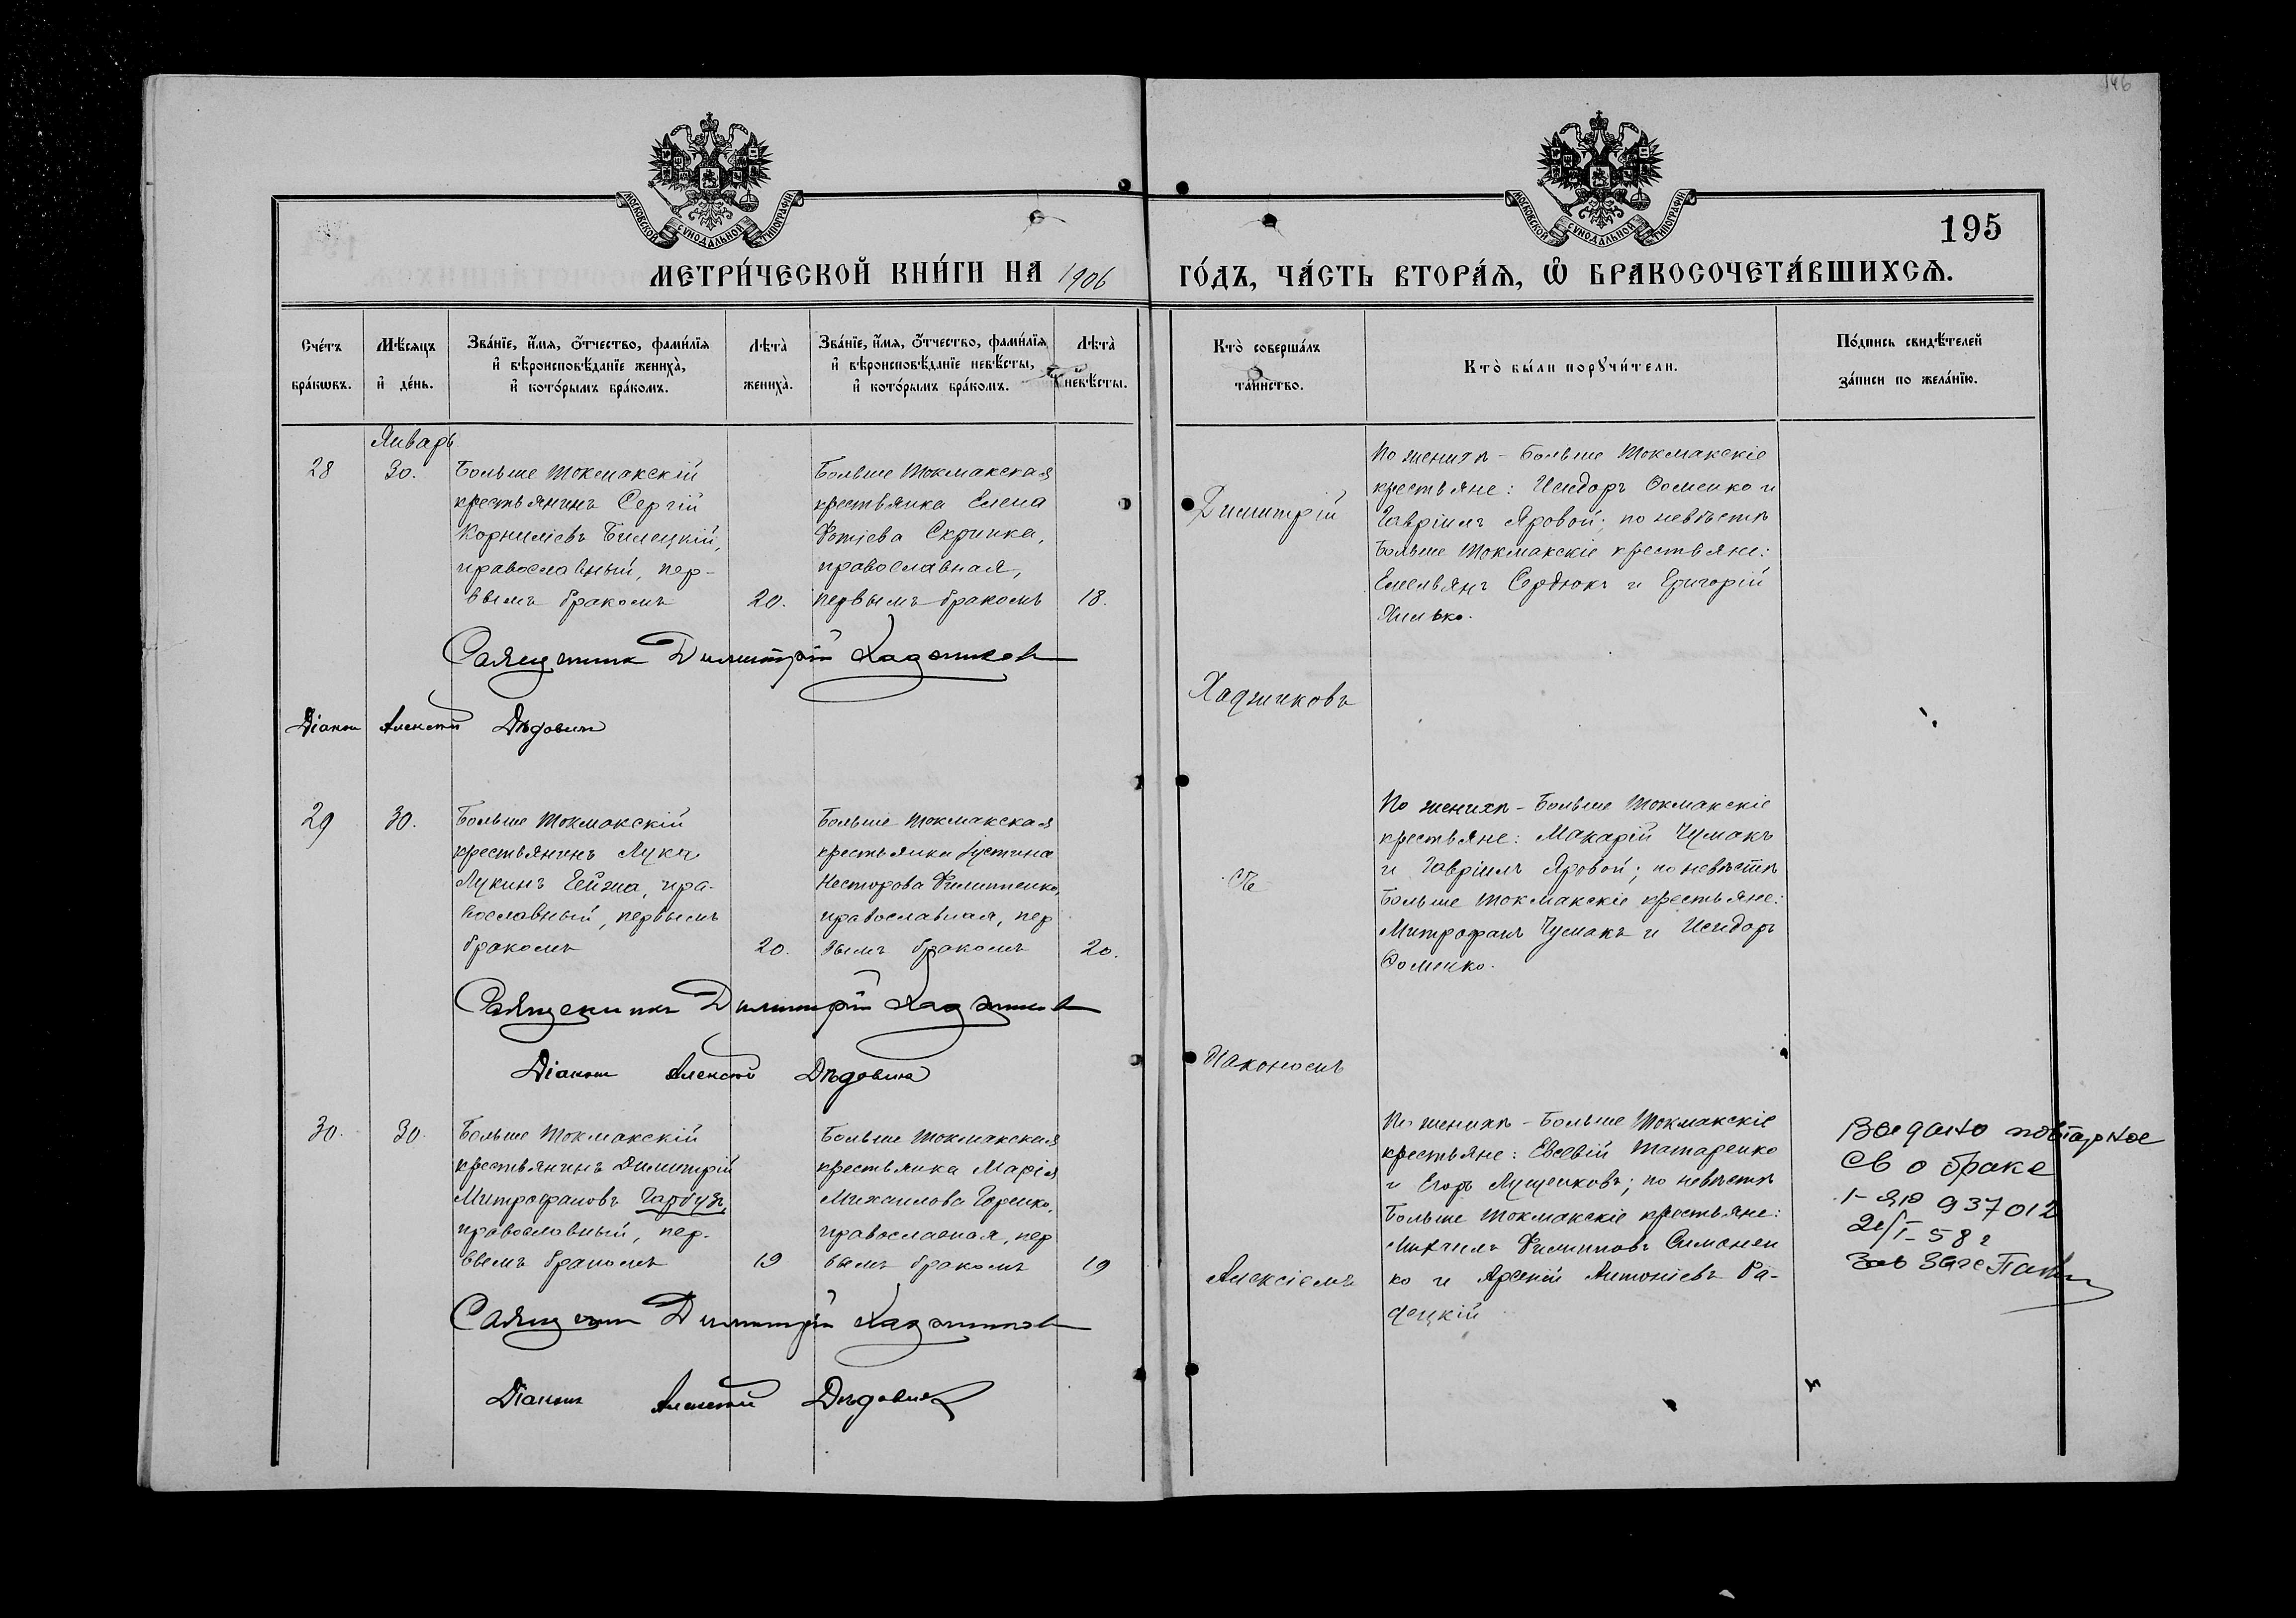 146
195
МОСКОВСКОЙ СѴНОДАЛЬНОЙ ТИПОГРАФІИ
МОСКОВСКОЙ СѴНОДАЛЬНОЙ ТИПОГРАФІИ
МЕТРИ́ЧЕСКОЙ КНИ́ГИ НА 1906 ГО́ДЪ, ЧА́СТЬ ВТОРА́Ѧ, Ѽ БРАКОСОЧЕТА́ВШИХСѦ.
Сче́тъ бра́кωвъ.
Мѣ́сяцъ и҆ де́нь.
Зва́нїе, и҆́мя, ѻ҆́тчество, фами́лїя
и҆ вѣроисповѣ́данїе жениха̀,
и҆ кото́рымъ бра́комъ.
Лѣта̀ жениха̀.
Зва́нїе, и҆́мя, ѻ҆́тчество, фами́лїя
и҆ вѣроисповѣ́данїе невѣ́сты,
и҆ кото́рымъ бра́комъ.
Лѣта̀ невѣ́сты.
Кто̀ соверша́лъ
та́инство.
Кто̀ бы́ли порꙋчи́тели.
По́дпись свидѣ́телей
за́писи по жела́нїю.
Январь
28
30.
Больше Токмакскій
крестьянинъ Сергій
Корниліевъ Билецкій,
православный, пер-
вымъ бракомъ
20.
Больше Токмакская
крестьянка Елена
Фотіева Скрипка,
православная,
первымъ бракомъ
18.
Димитрій
По женихѣ - Больше Токмакскіе
крестьяне: Исидоръ Фоменко и
Гавріилъ Яровой; по невѣстѣ
Больше Токмакскіе крестьяне:
Емельянъ Сердюкъ и Григорій
Хилько.
Священникъ Димитрій Хаджиковъ
Хаджиковъ
Діаконъ Алексій Дѣдовичъ
29
30.
Больше Токмакскій
крестьянинъ Лука
Лукинъ Гейжа, пра-
вославный, первымъ
бракомъ
20.
Больше Токмакская
крестьянка Іустина
Несторова Филипенко,
православная, пер
вымъ бракомъ
20.
съ
По женихѣ - Больше Токмакскіе
крестьяне: Макарій Чумакъ
и Гавріилъ Яровой; по невѣстѣ
Больше Токмакскіе крестьяне:
Митрофанъ Чумакъ и Исидоръ
Фоменко.
Священникъ Димитрій Хаджиковъ
Діаконъ Алексій Дѣдовичъ
Діакономъ
30.
30.
Больше Токмакскій
крестьянинъ Димитрій
Митрофановъ Гарбузъ,
православный, пер-
вымъ бракомъ
19
Больше Токмакская
крестьянка Марія
Михаилова Горенко,
православная, пер
вымъ бракомъ
19
Алексіемъ
По женихѣ - Больше Токмакскіе
крестьяне: Евсевій Татаренко
и Егоръ Лущенковъ; по невѣстѣ
Больше Токмакскіе крестьяне:
Михаилъ Филипповъ Симонен
ко и Арсеній Антоніевъ Ра-
децкій
Выдано повторное
св о браке
937012
58 г
Зав Загс
Священникъ Димитрій Хаджиковъ
Діаконъ Алексій Дѣдовичъ